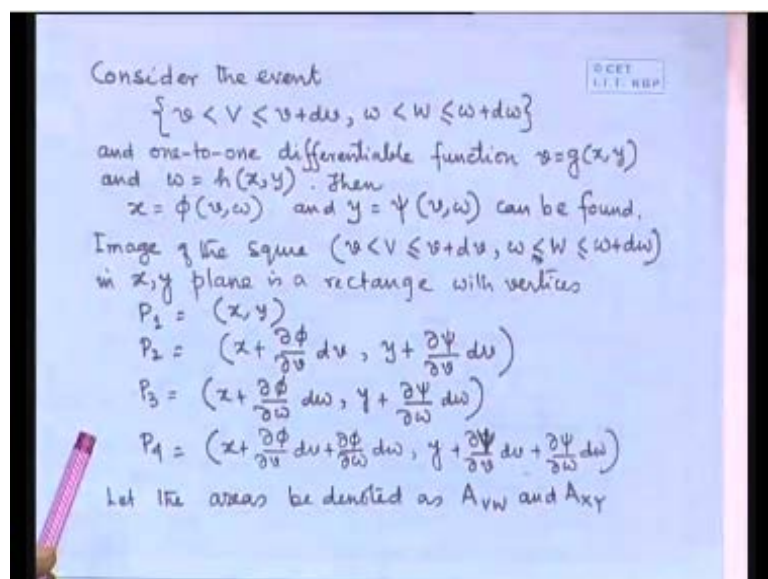 Consider the event
© CET
I.I.T. KGP
{v < V ⩽ v+dv, ω < W ⩽ ω+dω}
and one-to-one differentiable function v=g(x,y)
and ω = h(x,y). Then
x = ϕ(v,ω) and y = ψ(v,ω) can be found.
Image of the squre (v < V ⩽ v+dv, ω ⩽ W ⩽ ω+dω)
in x,y plane is a rectange with vertices
P₁ = (x, y)
P₂ = (x + ∂ϕ/∂v dv, y + ∂ψ/∂v dv)
P₃ = (x + ∂ϕ/∂ω dω, y + ∂ψ/∂ω dω)
P₄ = (x + ∂ϕ/∂v dv + ∂ϕ/∂ω dω, y + ∂ψ/∂v dv + ∂ψ/∂ω dω)
Let the areas be denoted as A_VW and A_XY